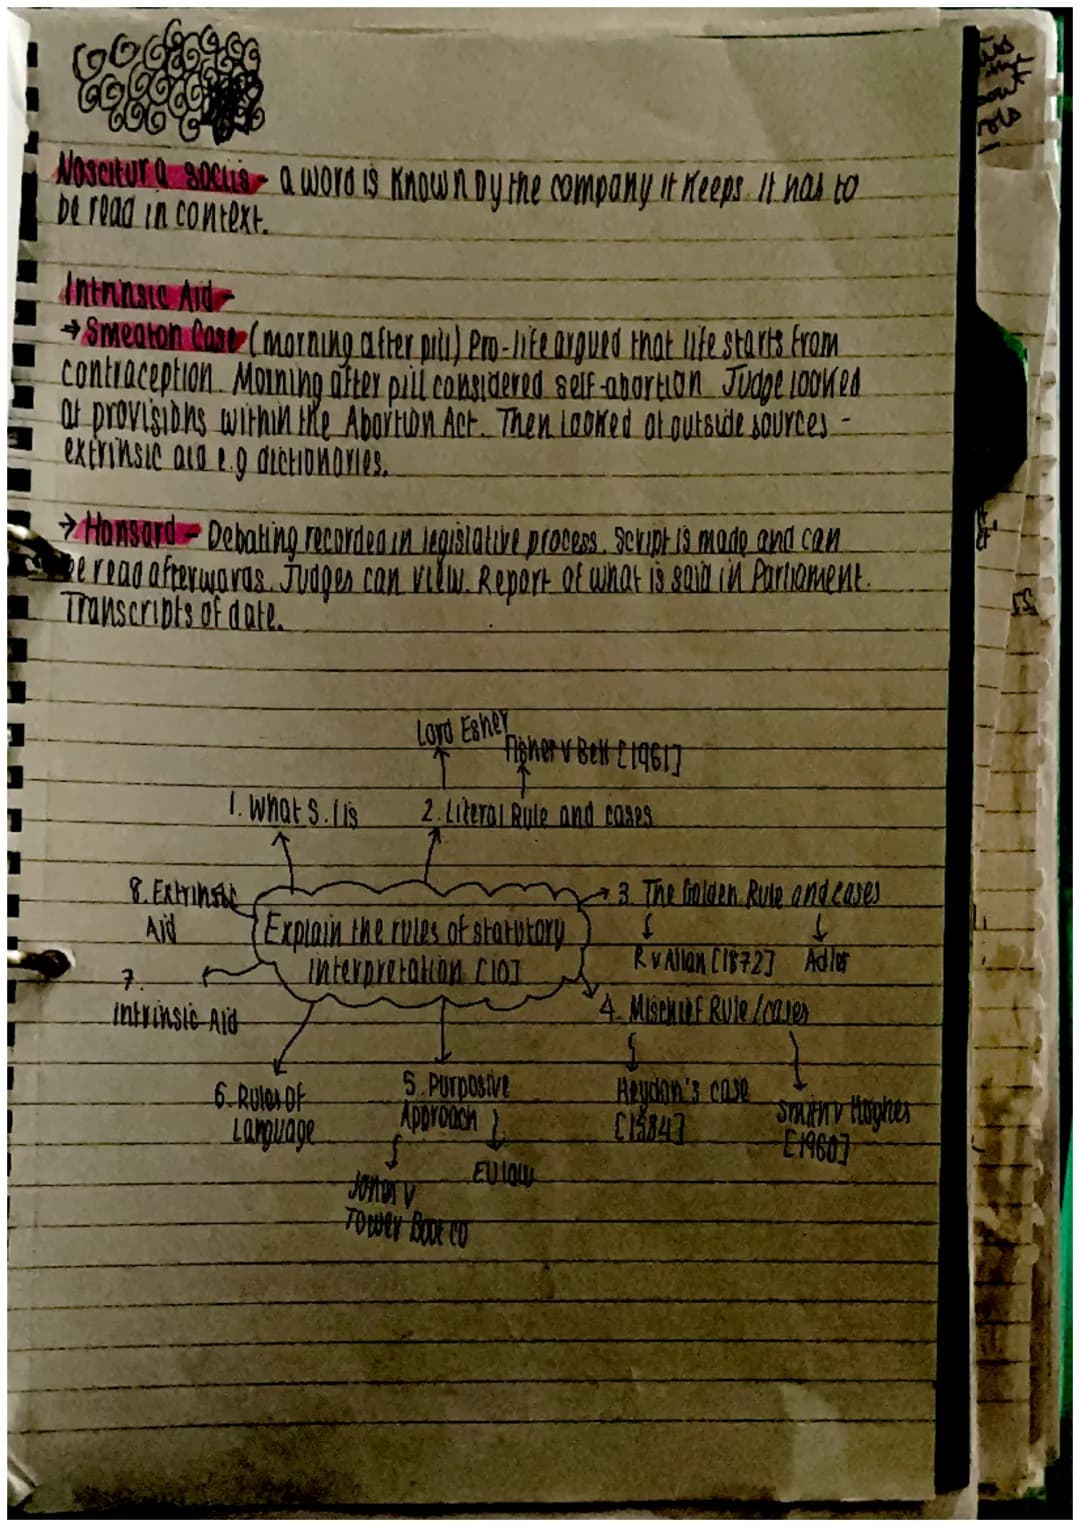 Noscitur a sociis - a word is known by the company it keeps. It has to
be read in context.
Intrinsic Aid -
→ Smeaton Case (morning after pill) Pro-life argued that life starts from
contraception. Morning after pill considered self-abortion. Judge looked
at provisions within the Abortion Act. Then looked at outside sources -
extrinsic aid e.g dictionaries.
→ Hansard - Debating recorded in legislative process. Script is made and can
be read afterwards. Judges can view. Report of what is said in Parliament.
Transcripts of date.
Lord Esher
Fisher v Bell [1961]
1. What S.I is
2. Literal Rule and cases
8. Extrinsic
Aid
3. The Golden Rule and cases
Explain the rules of statutory
interpretation [10]
R v Allan [1872]
Adler
7.
Intrinsic Aid
4. Mischief Rule / cases
6. Rules of
Language
5. Purposive
Approach
Heydon's case
[1584]
Smith v Hughes
[1960]
EU law
Jones v
Tower Boot co